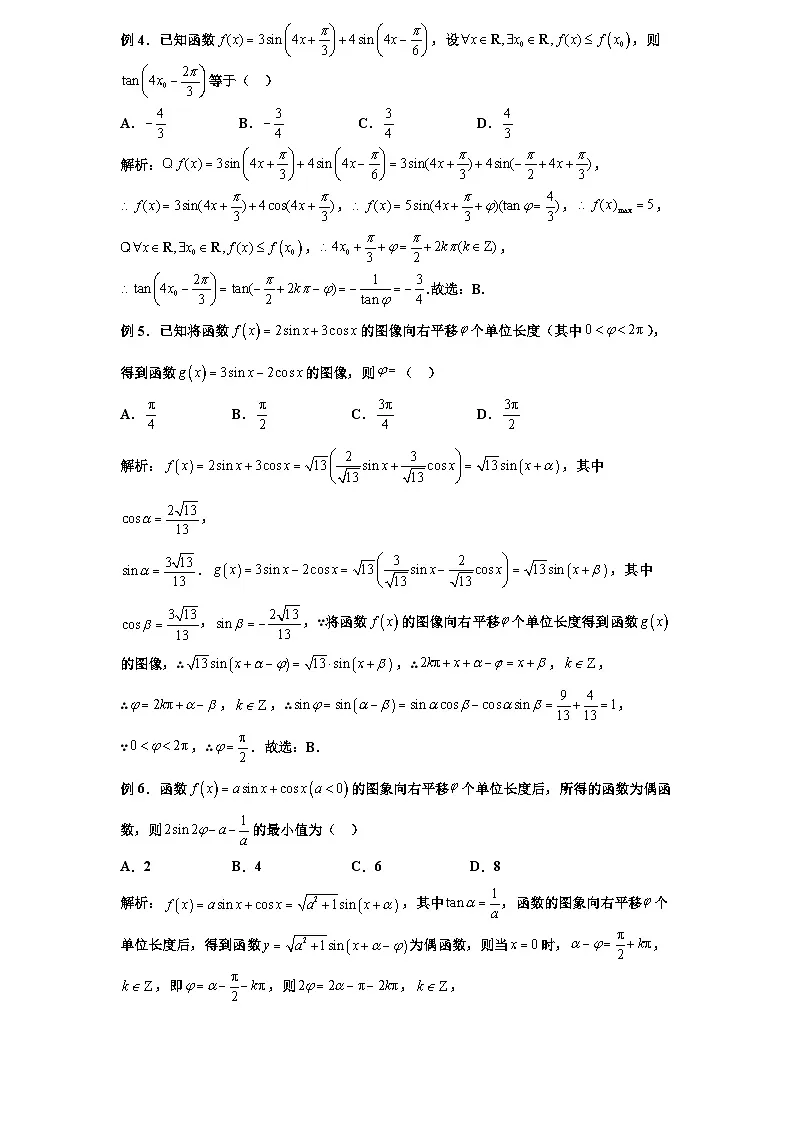 例4．已知函数 f(x) = 3sin(4x + π/3) + 4sin(4x − π/6)，设∀x∈R, ∃x₀∈R, f(x) ≤ f(x₀)，则
tan(4x₀ − 2π/3)等于（　）
A．−4/3　B．−3/4　C．3/4　D．4/3
解析：Q f(x) = 3sin(4x + π/3) + 4sin(4x − π/6) = 3sin(4x + π/3) + 4sin(−π/2 + 4x + π/3)，
∴ f(x) = 3sin(4x + π/3) + 4cos(4x + π/3)，∴ f(x) = 5sin(4x + π/3 + φ)(tan φ = 4/3)，∴ f(x)max = 5，
Q ∀x∈R, ∃x₀∈R, f(x) ≤ f(x₀)，∴ 4x₀ + π/3 + φ = π/2 + 2kπ(k∈Z)，
∴ tan(4x₀ − 2π/3) = tan(−π/2 + 2kπ − φ) = −1/tan φ = −3/4.故选：B．
例5．已知将函数 f(x) = 2sin x + 3cos x 的图像向右平移φ个单位长度（其中0 < φ < 2π），
得到函数g(x) = 3sin x − 2cos x的图像，则φ =（　）
A．π/4　B．π/2　C．3π/4　D．3π/2
解析：f(x) = 2sin x + 3cos x = √13(2/√13 sin x + 3/√13 cos x) = √13 sin(x + α)，其中
cos α = 2√13/13，
sin α = 3√13/13．g(x) = 3sin x − 2cos x = √13(3/√13 sin x − 2/√13 cos x) = √13 sin(x + β)，其中
cos β = 3√13/13，sin β = −2√13/13，∵将函数 f(x)的图像向右平移φ个单位长度得到函数g(x)
的图像，∴√13 sin(x + α − φ) = √13 · sin(x + β)，∴2kπ + x + α − φ = x + β，k∈Z，
∴φ = 2kπ + α − β，k∈Z，∴sin φ = sin(α − β) = sin α cos β − cos α sin β = 9/13 + 4/13 = 1，
∵0 < φ < 2π，∴φ = π/2．故选：B．
例6．函数 f(x) = a sin x + cos x(a < 0)的图象向右平移φ个单位长度后，所得的函数为偶函
数，则2sin 2φ − a − 1/a 的最小值为（　）
A．2　B．4　C．6　D．8
解析：f(x) = a sin x + cos x = √(a² + 1) sin(x + α)，其中tan α = 1/a，函数的图象向右平移φ个
单位长度后，得到函数y = √(a² + 1) sin(x + α − φ)为偶函数，则当x = 0时，α − φ = π/2 + kπ，
k∈Z，即φ = α − π/2 − kπ，则2φ = 2α − π − 2kπ，k∈Z，